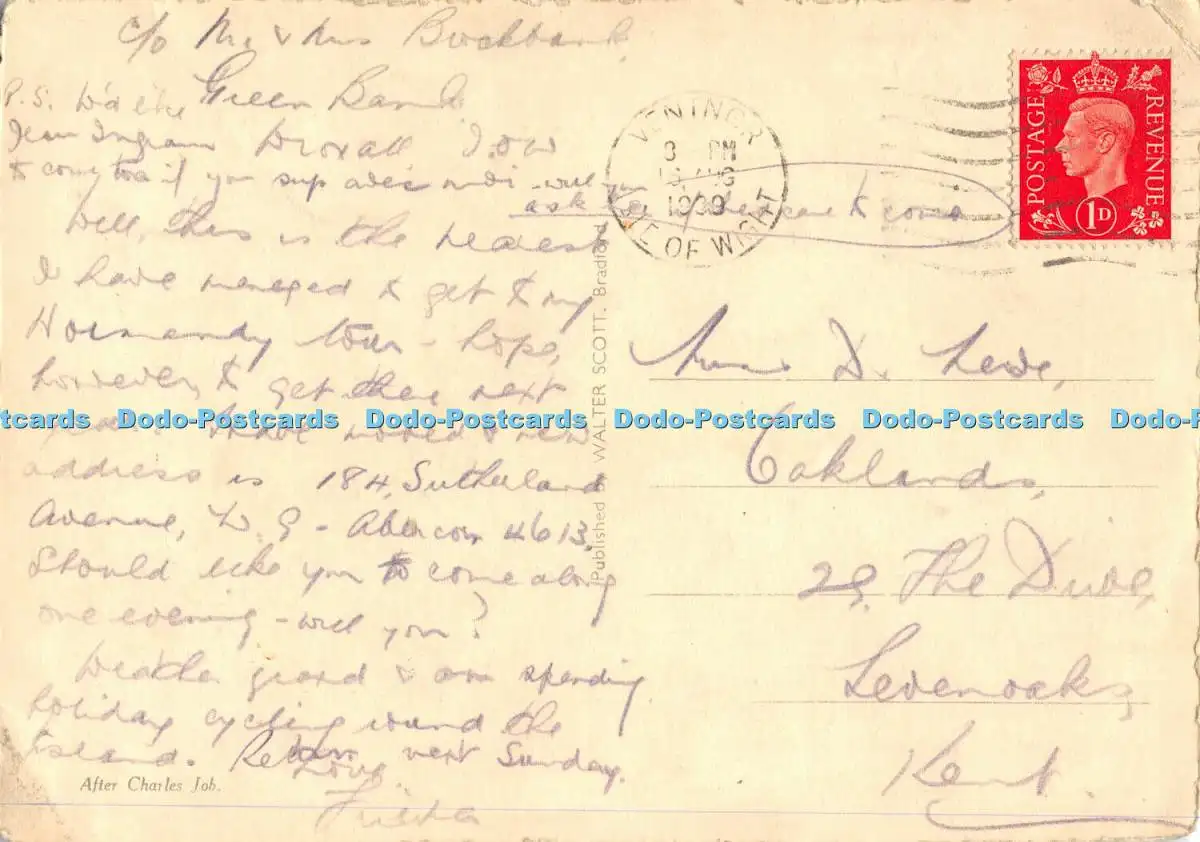 c/o Mr & Mrs
Green Bank
Wroxall I.O.W
P.S.
Jean Ingram
to come too if you
ask her if she care to come
Well, this is the nearest
I have managed to get to my
Normandy tour - hope,
however, to get there next
year. I have moved & new
address is 184, Sutherland
Avenue, W.9 - Abercorn 4613.
Should like you to come along
one evening - will you?
Weather grand & am spending
holiday cycling round the
Island. Return next Sunday.
Love
After Charles Job.
Published by WALTER SCOTT, Bradford
VENTNOR
8 PM
AUG
1939
ISLE OF WIGHT
POSTAGE REVENUE
1D
D.
Oaklands,
29, The Drive,
Sevenoaks,
Kent.
Dodo-Postcards Dodo-Postcards Dodo-Postcards Dodo-Postcards